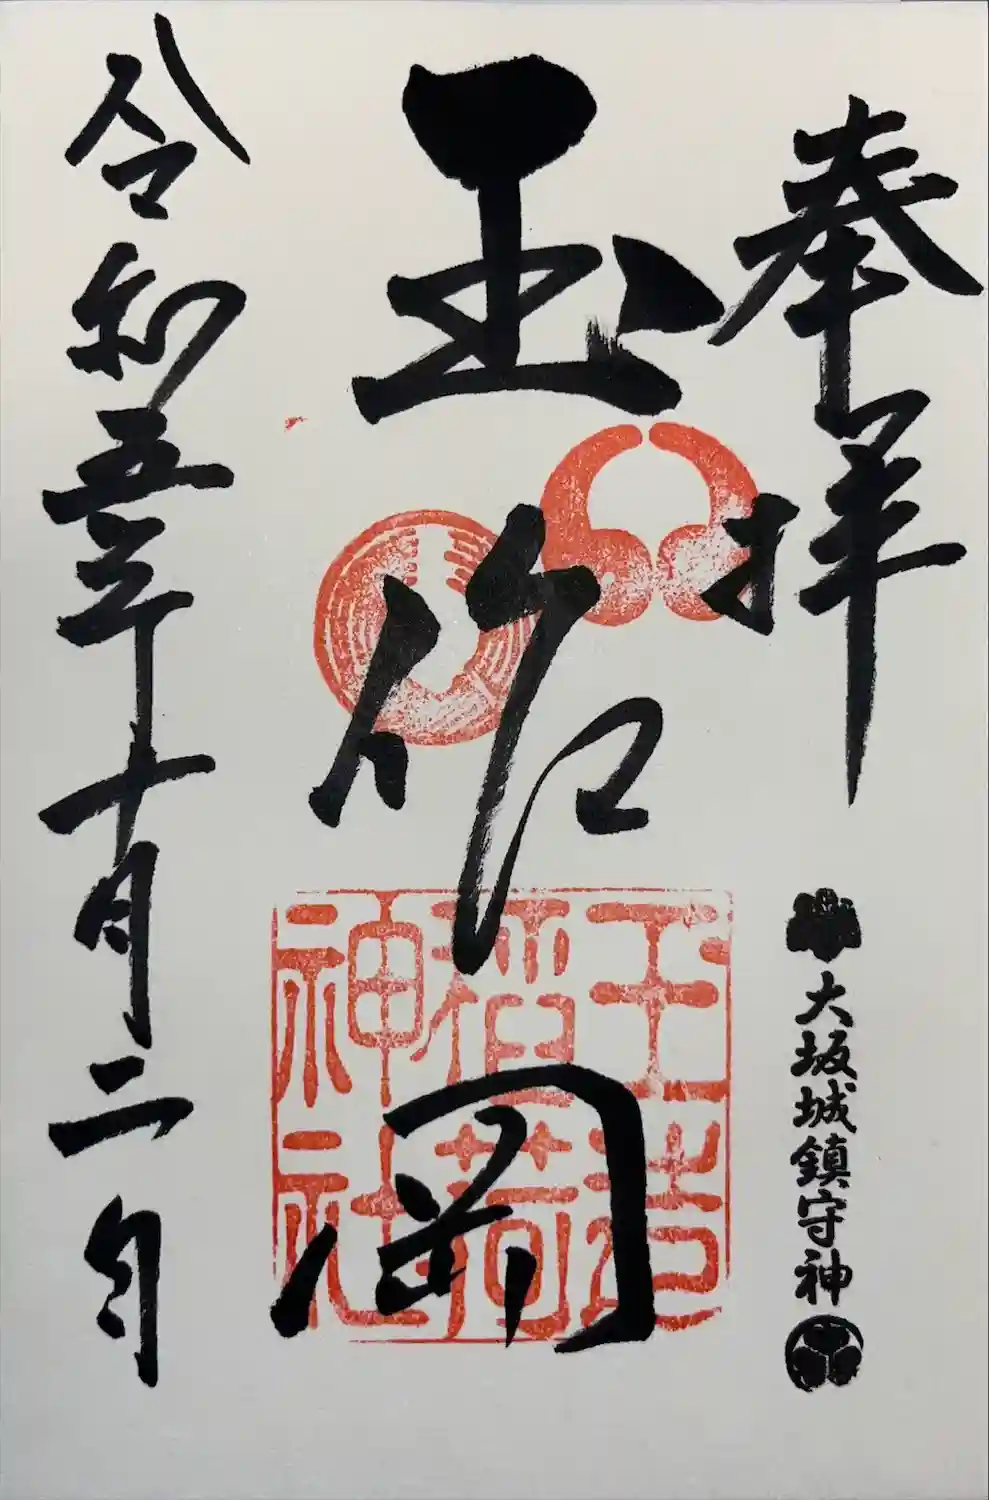 奉拝
大坂城鎮守神
玉作岡
玉造
稲荷
神社
令和五年十月二日